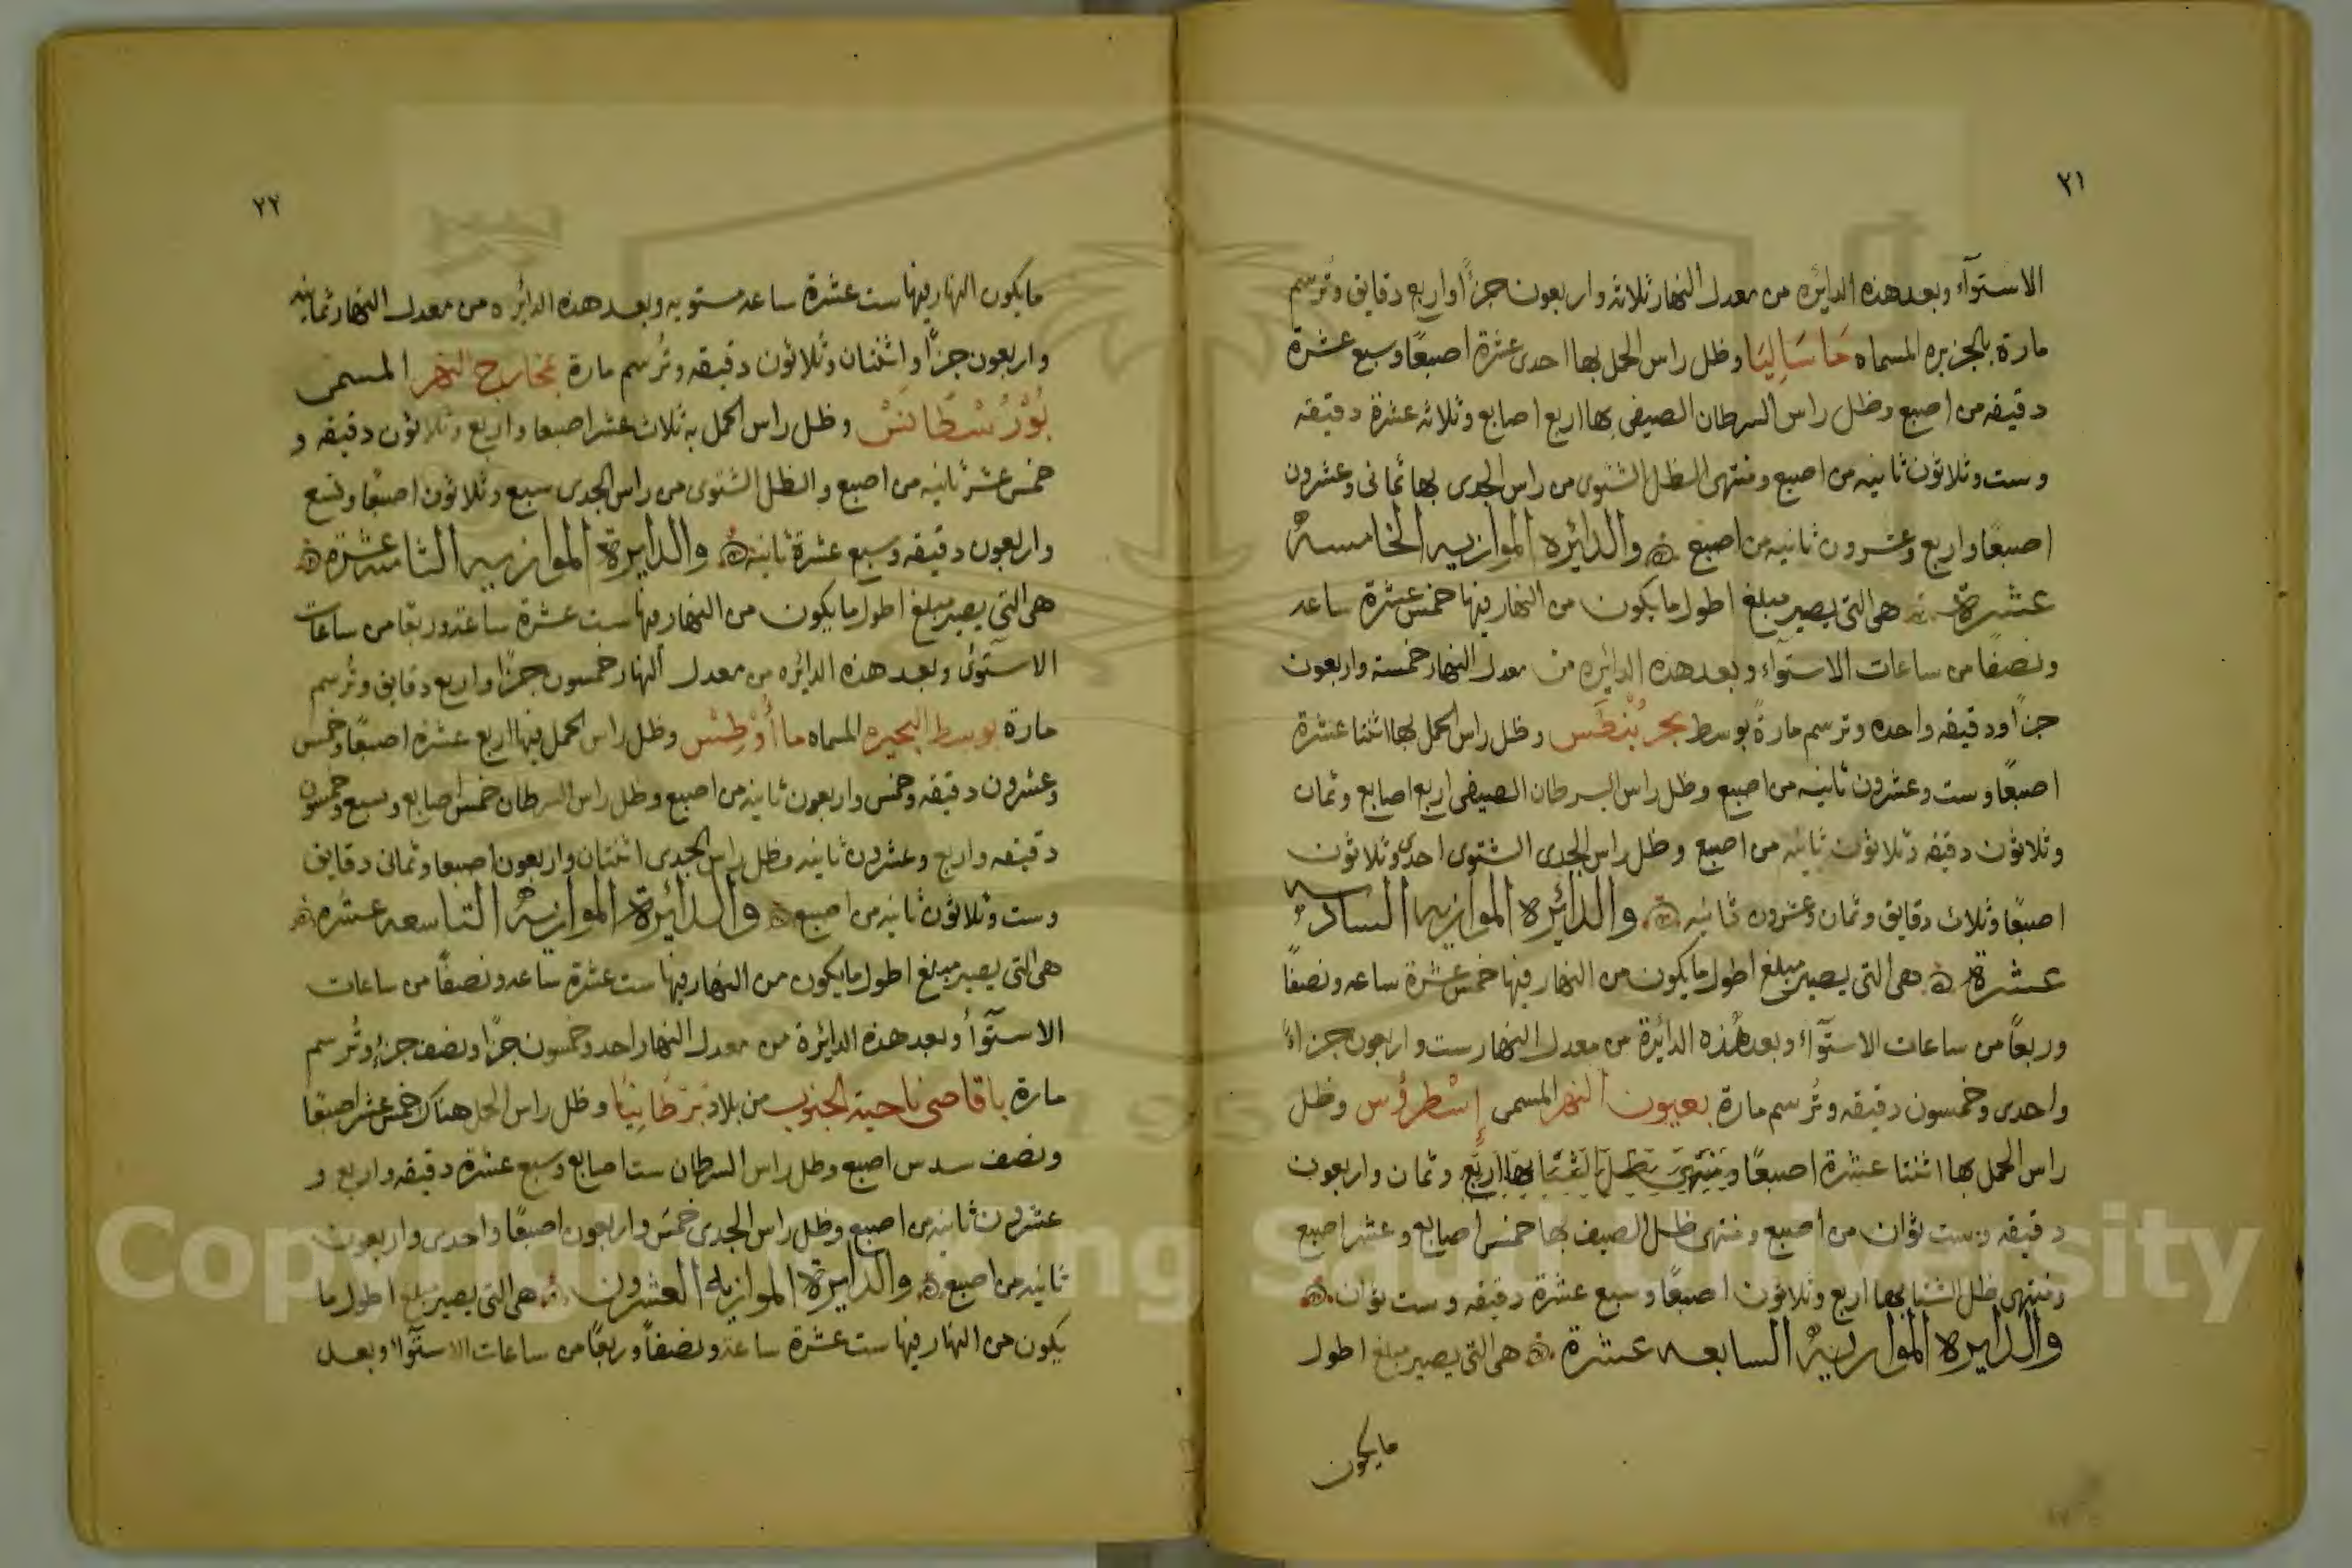 ٢١
الاستوآء وبعد هذه الدائره من معدل النهار ثلاثه واربعون جزءًا واربع دقايق وترسم
مارة بالجزيره المسماه مَاسَالِيَا وظل راس الحمل بها احدى عشرة اصبعًا وسبع عشرة
دقيقه من اصبع وظل راس السرطان الصيفى بها اربع اصابع وثلاثه عشرة دقيقه
وست وثلاثون ثانيه من اصبع ومنتهى الظل الشتوى من راس الجدى بها ثمانى وعشرون
اصبعًا واربع وعشرون ثانيه من اصبع والدائره الموازيه الخامسهُ
عشرة هى التى يصير مبلغ اطول ما يكون من النهار فيها خمس عشرة ساعه
ونصفًا من ساعات الاستوآء وبعد هذه الدائره من معدل النهار خمسه واربعون
جزءًا ودقيقه واحده وترسم مارةً بوسط بحر بُنْطَس وظل راس الحمل بها اثنتا عشرة
اصبعًا وست وعشرون ثانيه من اصبع وظل راس السرطان الصيفى اربع اصابع وثمان
وثلاثون دقيقه وثلاثون ثانيه من اصبع وظل راس الجدى الشتوى احدى وثلاثون
اصبعًا وثلاث دقايق وثمان وعشرون ثانيه والدائره الموازيه السادسه
عشرة وهى التى يصير مبلغ اطول ما يكون من النهار فيها خمس عشرة ساعه ونصفًا
وربعًا من ساعات الاستوآء وبعد هذه الدائرة من معدل النهار ست واربعون جزءاً
واحدى وخمسون دقيقه وتُرسم مارة بعيون النهر المسمى إِسْطرُوس وظل
راس الحمل بها اثنتا عشرة اصبعًا ومنتهى ظل الشتا بها اربع وثمان واربعون
دقيقه وست ثوان من اصبع ومنتهى ظل الصيف بها خمس اصابع وعشر اصبع
ومنتهى ظل الشتا بها اربع وثلاثون اصبعًا وسبع عشرة دقيقه وست ثوان
والدايره الموازيهُ السابعه عشرة هى التى يصير مبلغ اطول
مايكون
٢٢
مايكون النهار فيها ست عشرة ساعه مستويه وبعد هذه الدائره من معدل النهار ثمانيه
واربعون جزءًا واثنتان وثلاثون دقيقه وتُرسم مارة بمخارج النهر المسمى
بُوْرُسْطَانَسْ وظل راس الحمل به ثلاث عشر اصبعا واربع وثلاثون دقيقه و
خمس عشر ثانيه من اصبع والظل الشتوى من راس الجدى سبع وثلاثون اصبعًا وتسع
واربعون دقيقه وسبع عشرة ثانيه والدايرة الموازيه الثامنه عشرة
هى التى يصير مبلغ اطول ما يكون من النهار فيها ست عشرة ساعة وربعًا من ساعات
الاستوىٰ وبعد هذه الدائره من معدل النهار خمسون جزءًا واربع دقايق وتُرسم
مارة بوسط البحيره المسماه ما أُوْطِسْ وظل راس الحمل فيها اربع عشرة اصبعًا وخمس
وعشرون دقيقه وخمس واربعون ثانيه من اصبع وظل راس السرطان خمس اصابع وسبع وخمسون
دقيقه واربع وعشرون ثانيه وظل راس الجدى اثنتان واربعون اصبعا وثمانى دقايق
وست وثلاثون ثانيه من اصبع والدائرة الموازيهُ التاسعه عشره
هى التى يصير مبلغ اطول مايكون من النهار فيها ست عشرة ساعه ونصفًا من ساعات
الاستوآء وبعد هذه الدائرة من معدل النهار احد وخمسون جزءًا ونصف جزء وتُرسم
مارة باقاصى ناحية الجنوب من بلاد بَرَطَانِيَا وظل راس الحمل هناك خمس عشر اصبعًا
ونصف سدس اصبع وظل راس السرطان ست اصابع وسبع عشرة دقيقه واربع و
عشرون ثانيه من اصبع وظل راس الجدى خمس واربعون اصبعًا واحدى واربعون
ثانيه من اصبع والدايرة الموازيه العشرون هى التى يصير مبلغ اطول ما
يكون من النهار فيها ست عشرة ساعة ونصفاً وربعًا من ساعات الاستوآء وبعد